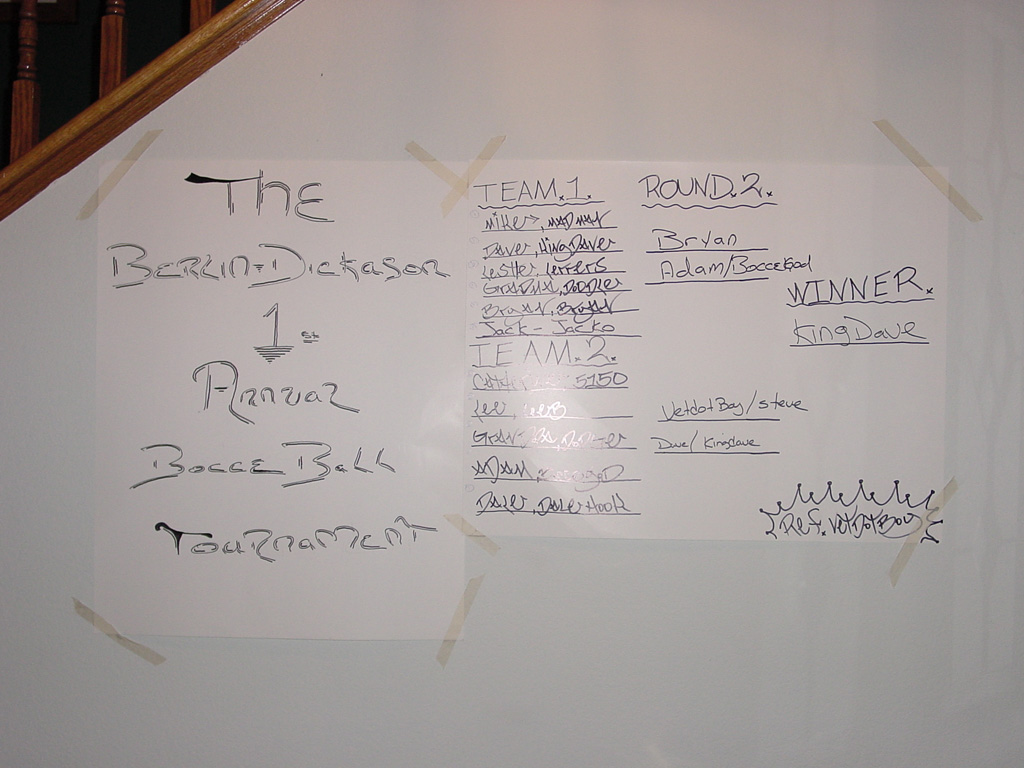 The
Berlin-Dickason
1st
Annual
Bocce Ball
Tournament
TEAM.1.
Mike, MADMAN
Daver, KingDaver
Lester, Lesters
Grandma,
Bryan, Bryan
Jack - Jacko
TEAM.2.
5150
Lee,
Adam,
Daler, DalerHook
ROUND.2.
Bryan
Adam/BocceGod
VetdotBoy/steve
Dave/Kingdave
WINNER.
KingDave
Ref. VetDotBoy